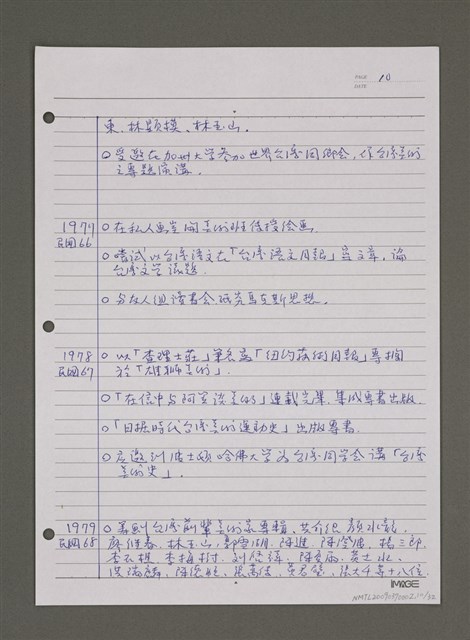 PAGE 10
DATE
東、林顕模、林玉山.
○ 受邀在加州大学参加世界台湾同鄉会, 作台湾美術
之專題演講.
1977 ○ 在私人画室開美術班傳授绘画.
民國66
○ 嘗試以台湾語文在「台湾語文月報」寫文章, 論
台湾文学議題.
○ 与友人組讀書会研究馬克斯思想.
1978 ○ 以「李理士莊」筆名為「纽约藝術月報」專欄
民國67 於「雄獅美術」.
○ 「在信中与阿笠談美術」連載完畢, 集成專書出版.
○ 「日據時代台湾美術運動史」出版專書.
○ 应邀到波士頓哈佛大学為台湾同学会講「台湾
美術史」.
1979 ○ 籌劃台湾前輩美術家專輯, 共介绍 顏水龍、
民國68 廖继春、林玉山、郭雪湖、陳進、陳澄波、楊三郎、
李石樵、李梅樹、刘启祥、陳夏雨、黄土水、
洪瑞麟、陳德旺、張萬傳、張大千等十八位.
IMAGE
NMTL20090370002.10/32